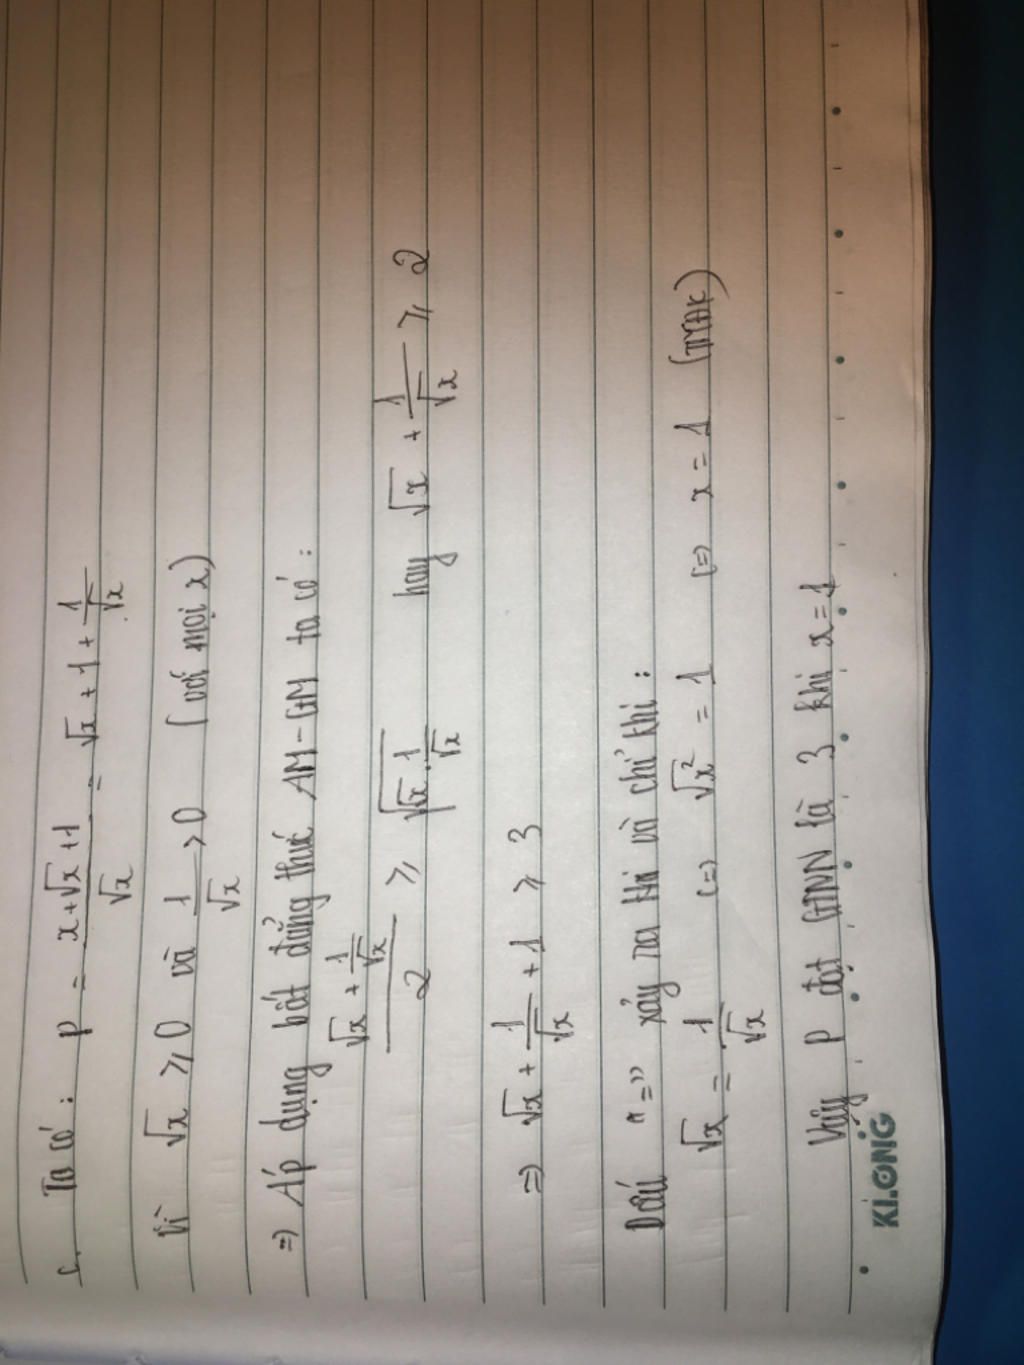 c. Ta có: P = x+√x+1 / √x = √x + 1 + 1/√x
Vì √x ⩾ 0 và 1/√x > 0 (với mọi x)
=> Áp dụng bất đẳng thức AM-GM ta có:
(√x + 1/√x) / 2 ⩾ √(√x . 1/√x) hay √x + 1/√x ⩾ 2
=> √x + 1/√x + 1 ⩾ 3
Dấu "=" xảy ra khi và chỉ khi:
√x = 1/√x (=) √x² = 1 (=) x = 1 (TMĐK)
Vậy P đạt GTNN là 3 khi x = 1
KI.ONG